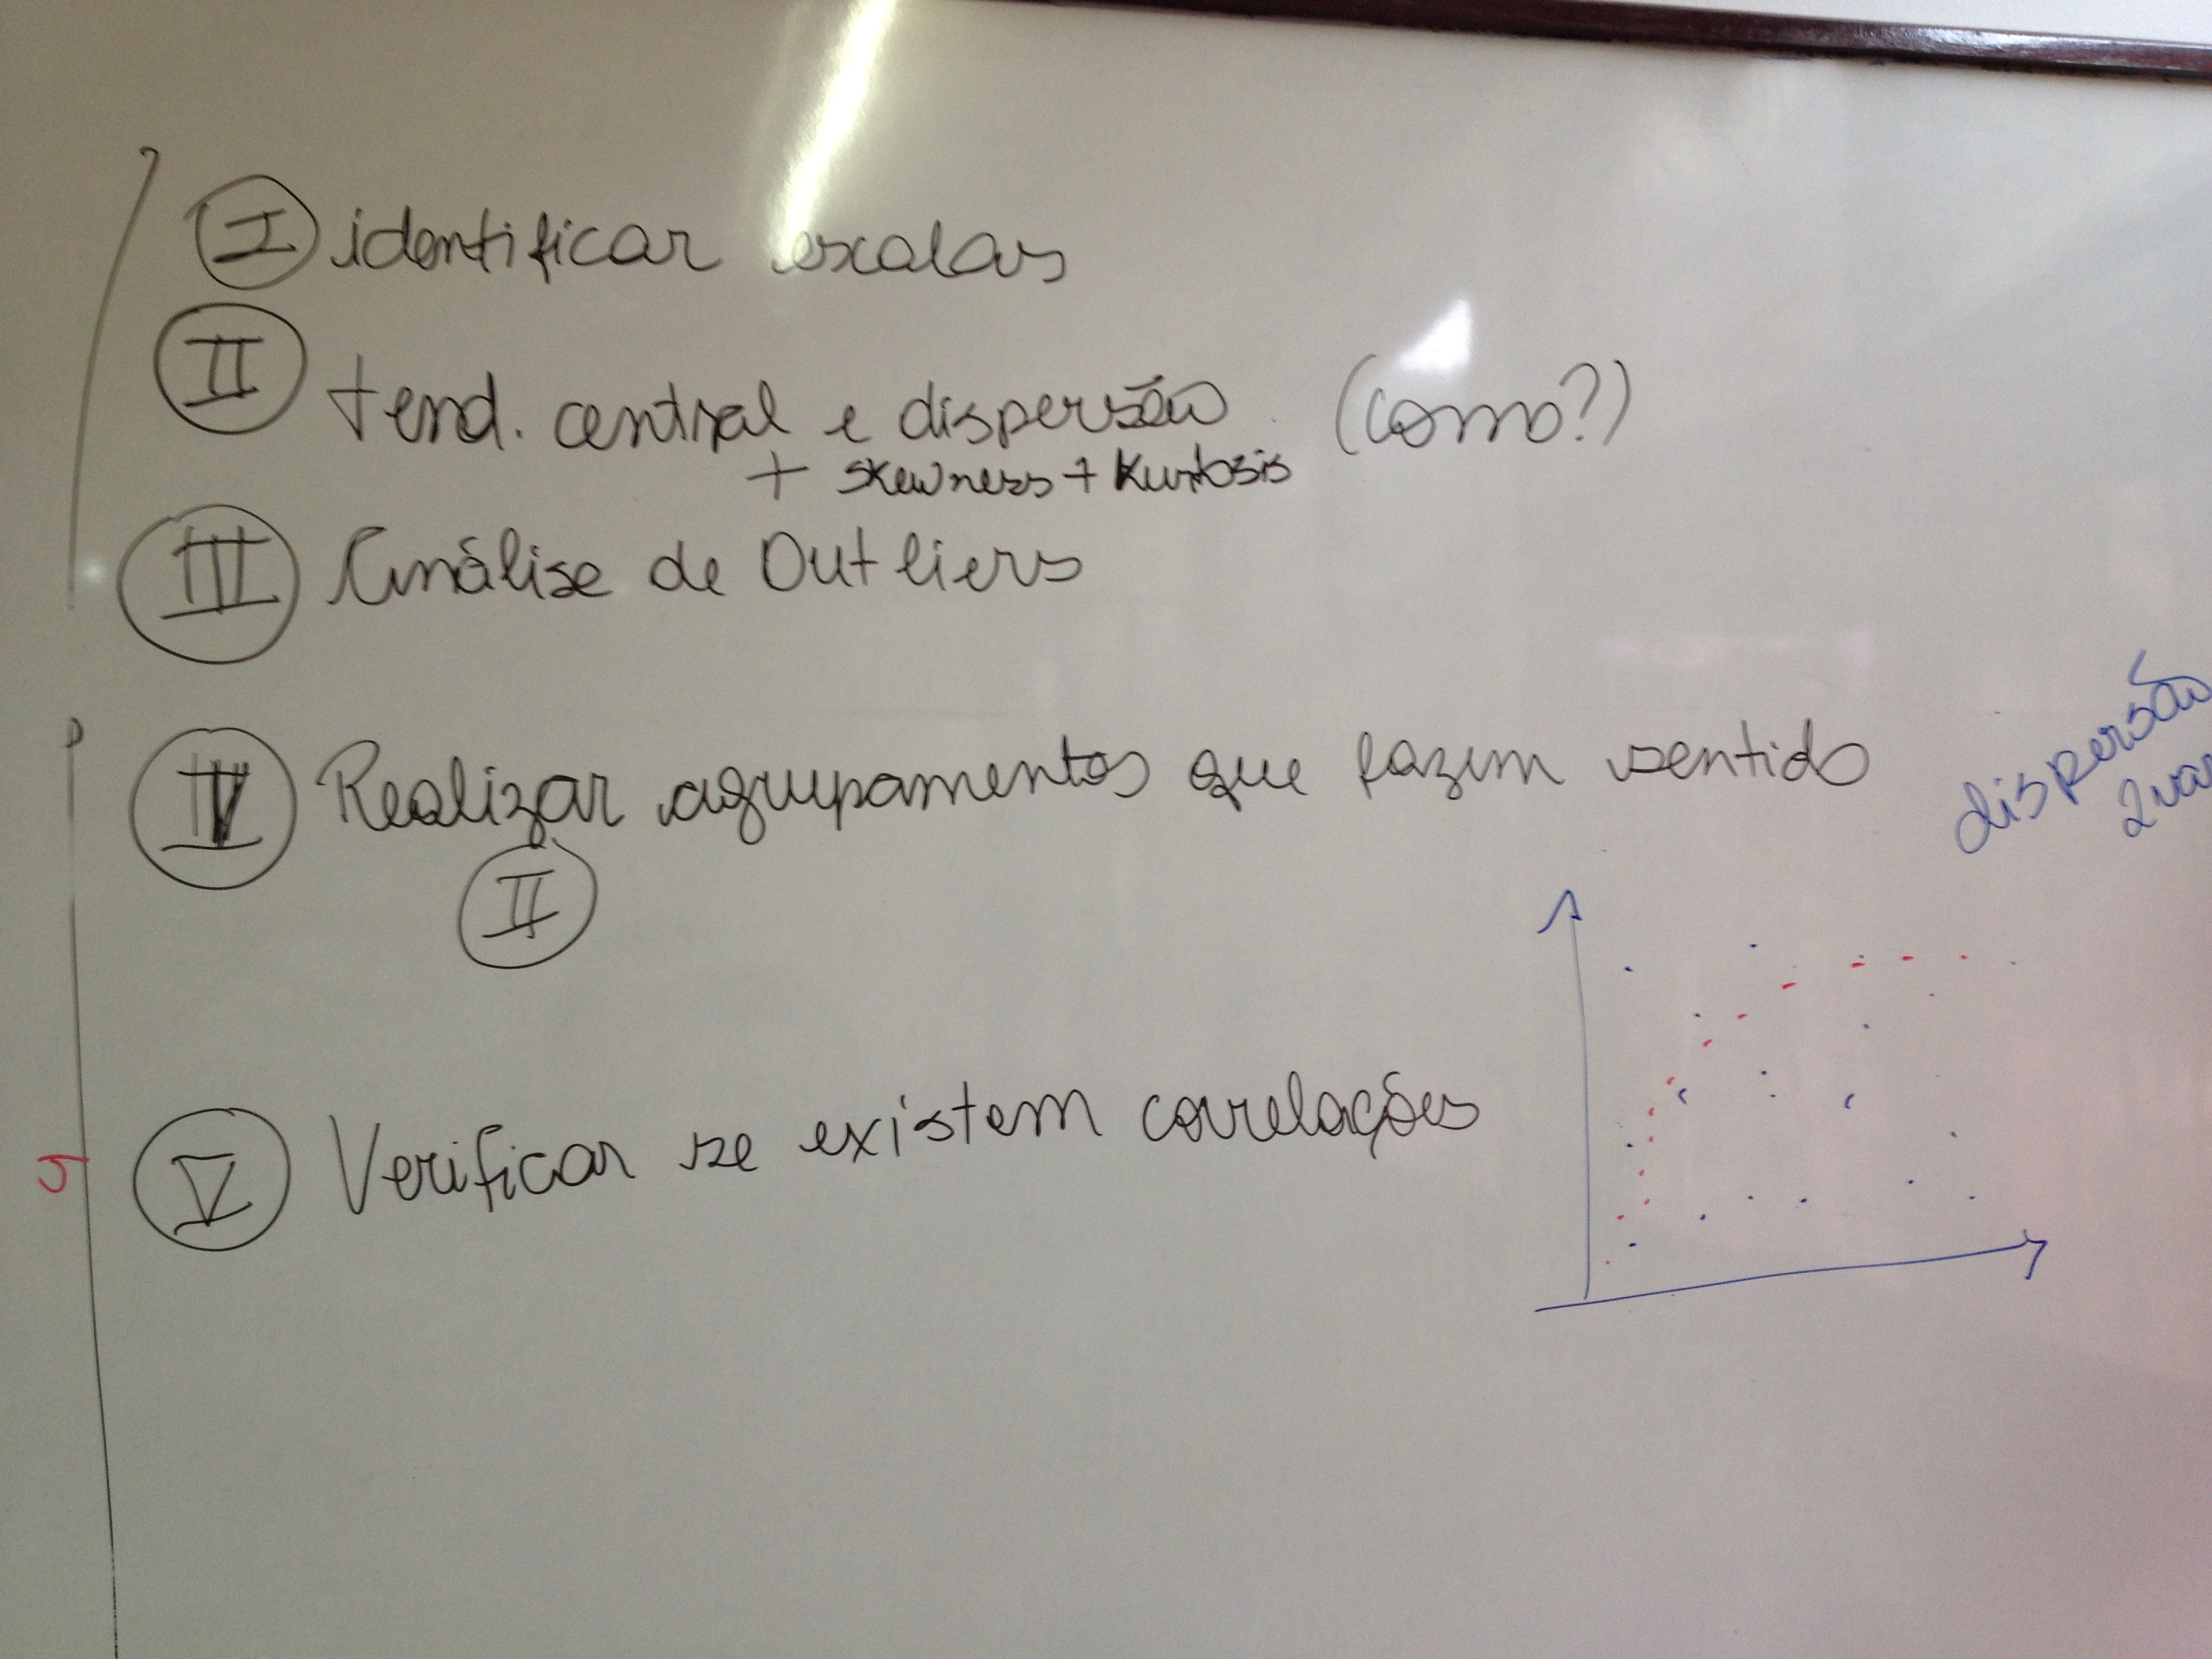 I identificar escalas
II tend. central e dispersão (como?)
+ skewness + Kurtosis
III Análise de Outliers
IV Realizar agrupamentos que fazem sentido
II
dispersão
V Verificar se existem correlações